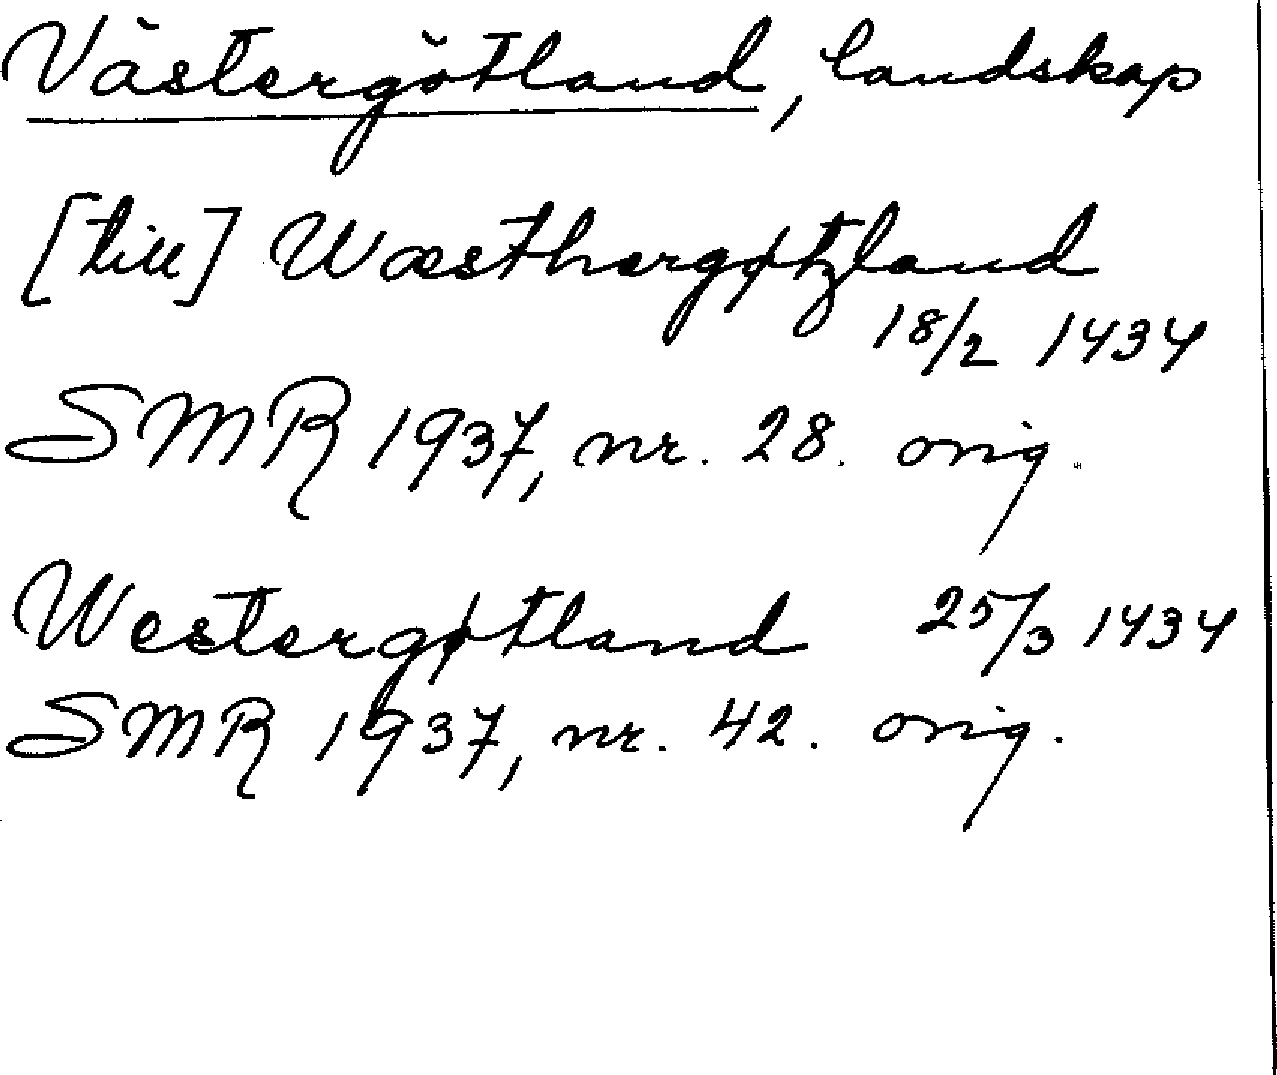 Västergötland, landskap
[till] Wæsthergøtzland
18/2 1434
SMR 1937, nr. 28. orig.
Westergøtland 25/3 1434
SMR 1937, nr. 42. orig.